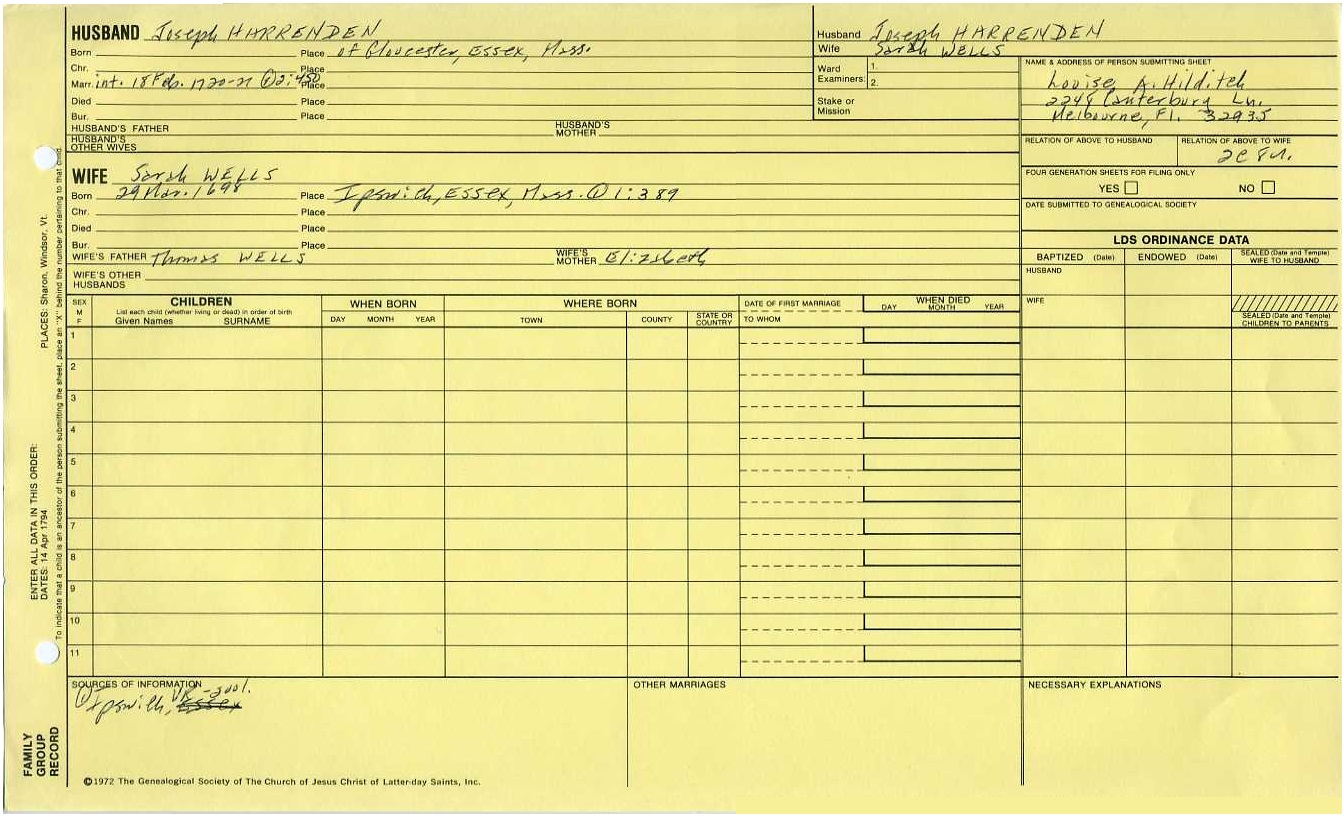 HUSBAND Joseph HARRENDEN
Born Place of Gloucester, Essex, Mass.
Chr. Place
Marr. int. 18 Feb. 1720-21 ① 2:450 Place
Died Place
Bur. Place
HUSBAND'S FATHER HUSBAND'S MOTHER
HUSBAND'S OTHER WIVES
Husband Joseph HARRENDEN
Wife Sarah WELLS
Ward Examiners: 1.
2.
Stake or Mission
NAME & ADDRESS OF PERSON SUBMITTING SHEET
Louise A. Hilditch
2248 Canterbury Ln.
Melbourne, Fl. 32935
RELATION OF ABOVE TO HUSBAND RELATION OF ABOVE TO WIFE
2C 8
FOUR GENERATION SHEETS FOR FILING ONLY
YES NO
DATE SUBMITTED TO GENEALOGICAL SOCIETY
WIFE Sarah WELLS
Born 29 Mar. 1698 Place Ipswich, ESSEX, Mass. ① 1:389
Chr. Place
Died Place
Bur. Place
WIFE'S FATHER Thomas WELLS WIFE'S MOTHER Elizabeth
WIFE'S OTHER HUSBANDS
LDS ORDINANCE DATA
BAPTIZED (Date) ENDOWED (Date) SEALED (Date and Temple) WIFE TO HUSBAND
HUSBAND
WIFE
SEALED (Date and Temple) CHILDREN TO PARENTS
SEX M F
CHILDREN
List each child (whether living or dead) in order of birth
Given Names SURNAME
WHEN BORN
DAY MONTH YEAR
WHERE BORN
TOWN COUNTY STATE OR COUNTRY
DATE OF FIRST MARRIAGE
TO WHOM
WHEN DIED
DAY MONTH YEAR
1
2
3
4
5
6
7
8
9
10
11
SOURCES OF INFORMATION
① Ipswich, VR
OTHER MARRIAGES
NECESSARY EXPLANATIONS
©1972 The Genealogical Society of The Church of Jesus Christ of Latter-day Saints, Inc.
FAMILY GROUP RECORD
ENTER ALL DATA IN THIS ORDER:
DATES: 14 Apr 1794
PLACES: Sharon, Windsor, Vt.
To indicate that a child is an ancestor of the person submitting the sheet, place an "X" behind the number pertaining to that child.